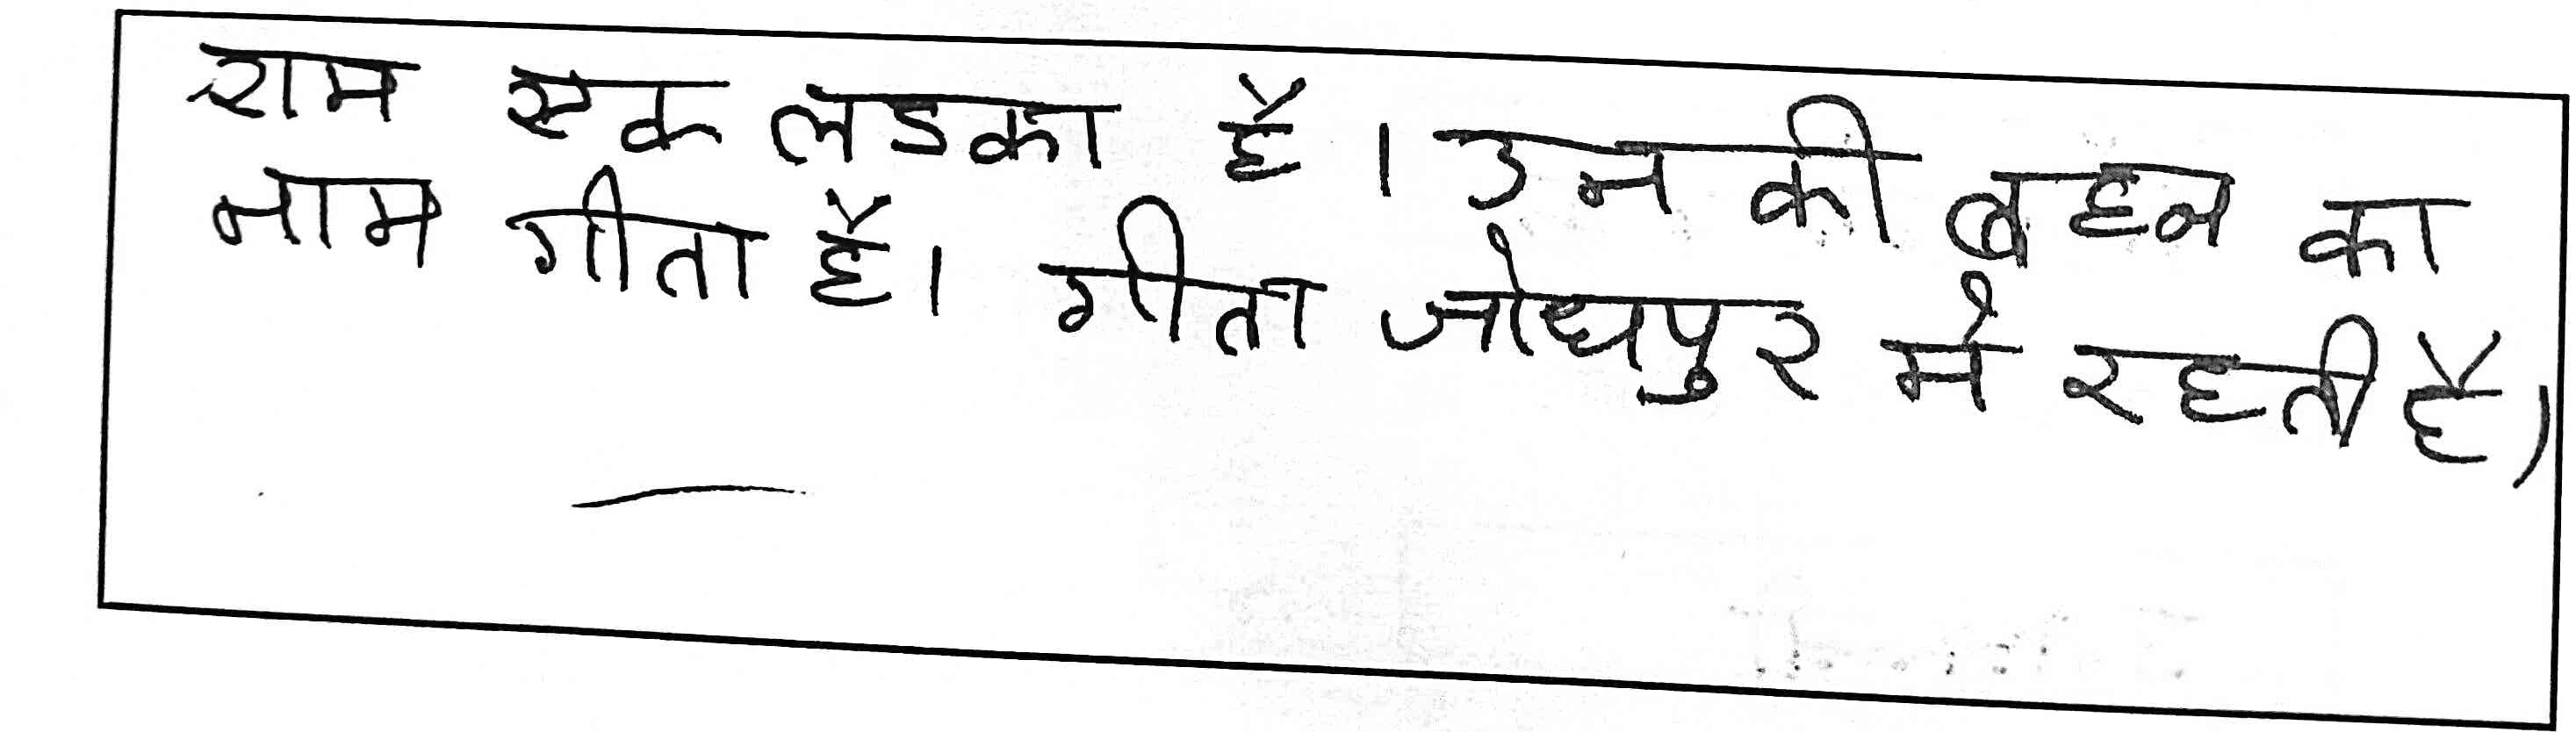 राम एक लडका है । उनकी बहन का
नाम गीता है। गीता जोधपुर में रहती है।